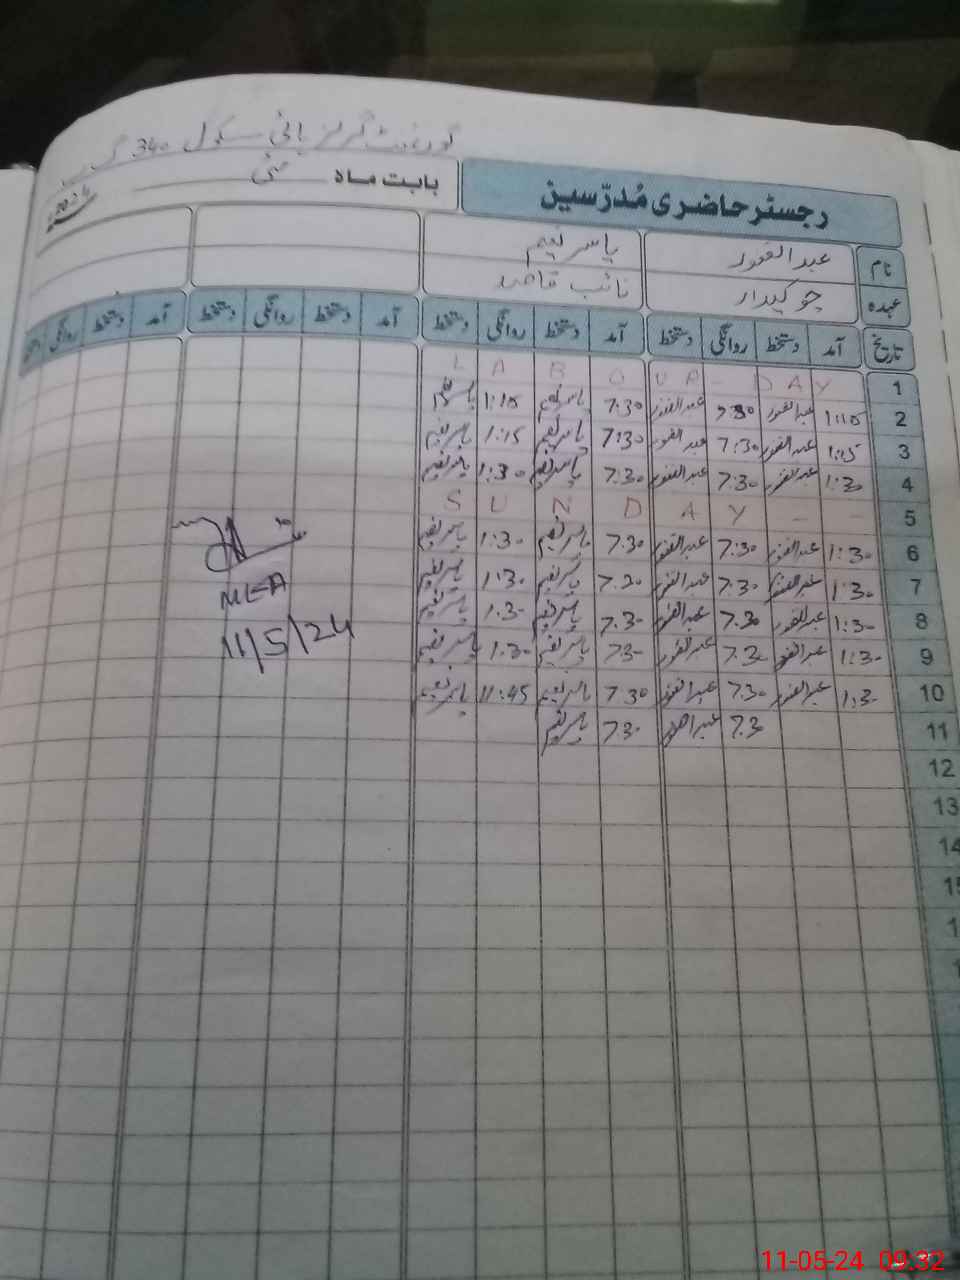 گورنمنٹ گرلز ہائی سکول 340 گ ب
رجسٹر حاضری مُدرّسین
بابت ماہ مئی 2024
نام عبدالغفور یاسر نعیم
عہدہ چوکیدار نائب قاصد
تاریخ آمد دستخط روانگی دستخط آمد دستخط روانگی دستخط آمد دستخط روانگی دستخط آمد دستخط روانگی دستخط
1 LABOUR - DAY
2 1:15 عبدالغفور 7:30 عبدالغفور 7:30 یاسر نعیم 1:15 یاسر نعیم
3 1:15 عبدالغفور 7:30 عبدالغفور 7:30 یاسر نعیم 1:15 یاسر نعیم
4 1:30 عبدالغفور 7:30 عبدالغفور 7:30 یاسر نعیم 1:30 یاسر نعیم
5 SUNDAY - -
6 1:30 عبدالغفور 7:30 عبدالغفور 7:30 یاسر نعیم 1:30 یاسر نعیم
7 1:30 عبدالغفور 7:30 عبدالغفور 7:30 یاسر نعیم 1:30 یاسر نعیم
8 1:30 عبدالغفور 7:30 عبدالغفور 7:30 یاسر نعیم 1:30 یاسر نعیم
9 1:30 عبدالغفور 7:30 عبدالغفور 7:30 یاسر نعیم 1:30 یاسر نعیم
10 1:30 عبدالغفور 7:30 عبدالغفور 7:30 یاسر نعیم 11:45 یاسر نعیم
11 7:30 عبدالغفور 7:30 یاسر نعیم
12
13
14
15
MEA
11/5/24
11-05-24 09:32